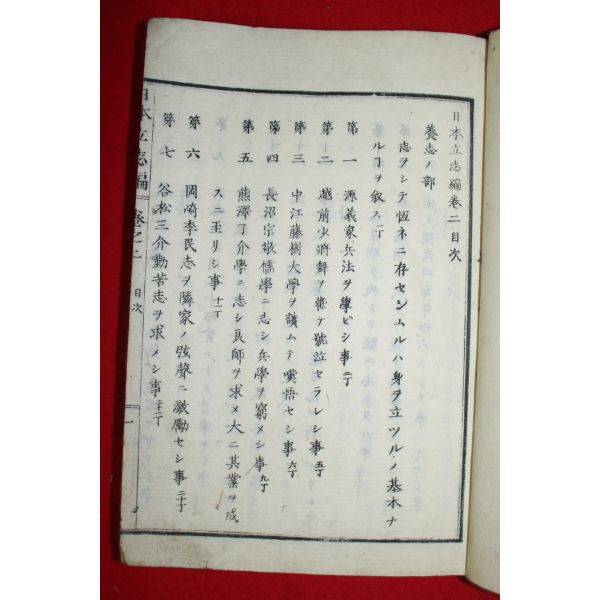 日本立志編卷二目次
養志ノ部
志ヲシテ恆ネニ存センムルハ身ヲ立ツルノ基本ナ
ルヿヲ叙ス 一丁
第一 源義家兵法ヲ學ビシ事 二丁
第二 越前少將舞ヲ觀テ號泣セラレシ事 五丁
第三 中江藤樹大學ヲ讀ムテ嘆悟セシ事 六丁
第四 長沼宗敬儒學ニ志シ兵學ヲ窮メシ事 九丁
第五 熊澤了介學ニ志シ良師ヲ求メ大ニ其業ヲ成
スニ至リシ事 十一丁
第六 岡崎李民志ヲ隣家ノ弦聲ニ激勵セシ事 二十丁
第七 谷松三介勤苦志ヲ求メシ事 二十二丁
日本立志編 卷之二 目次 一